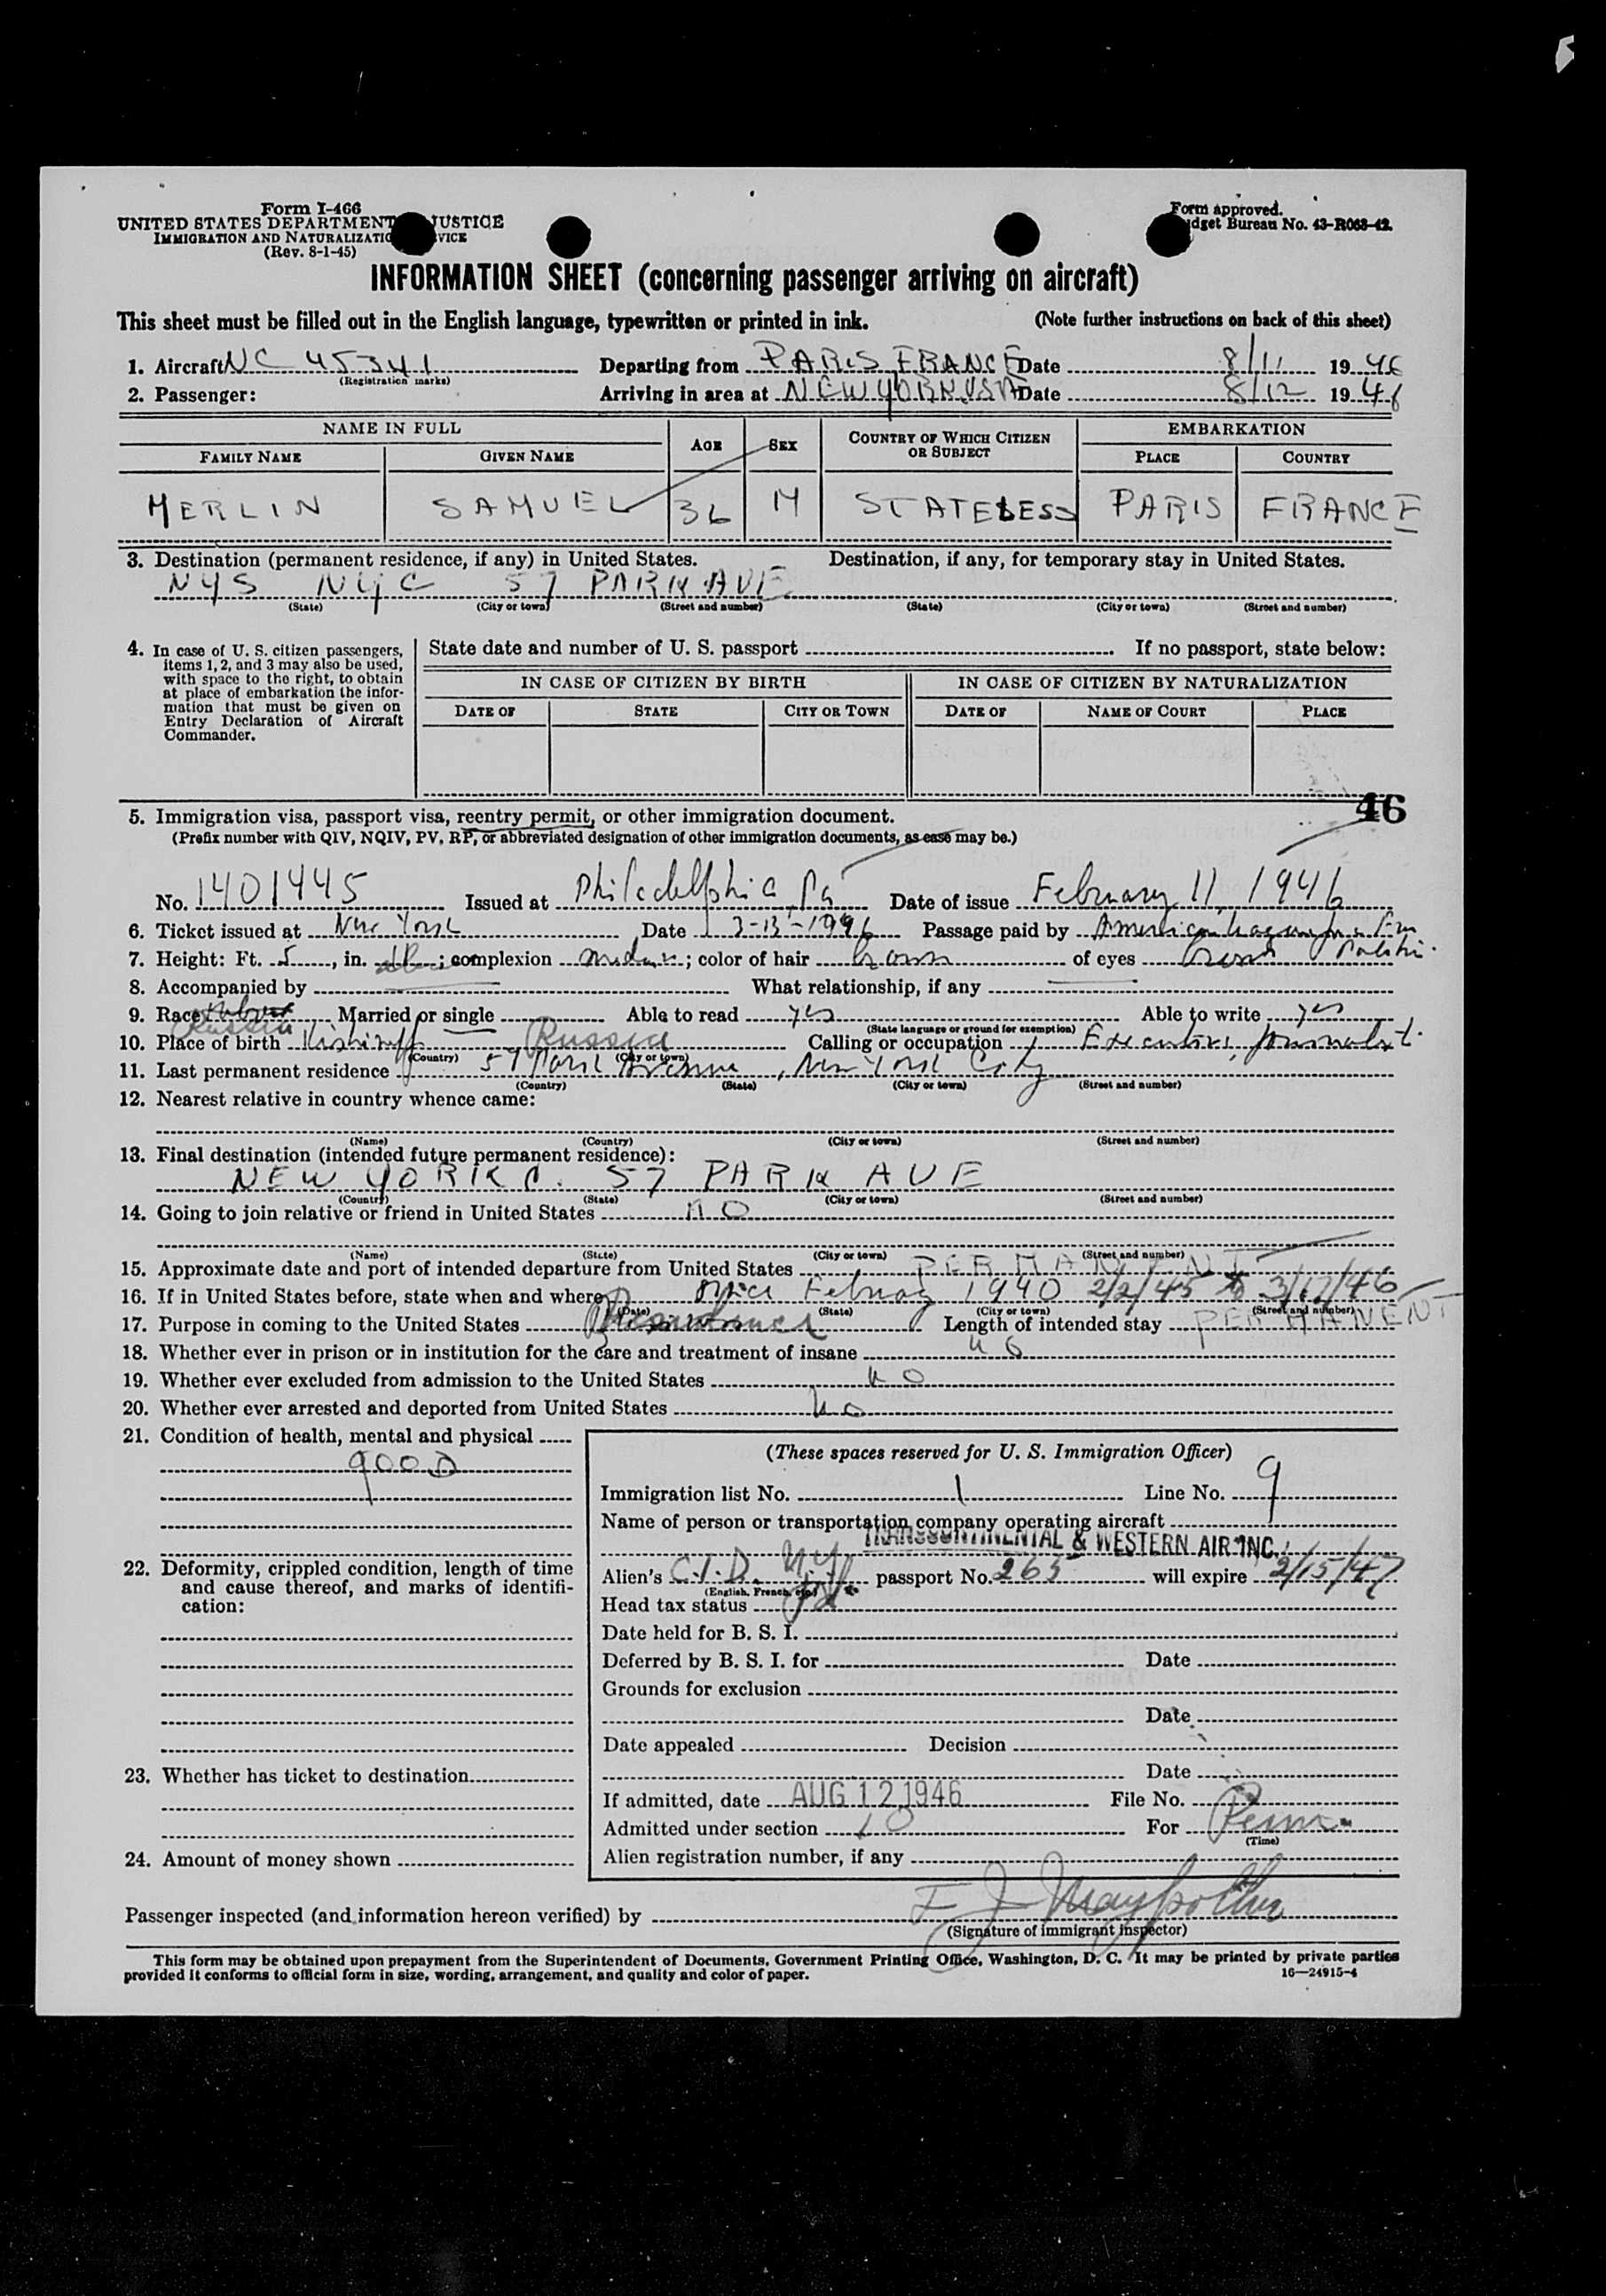 Form I-466
UNITED STATES DEPARTMENT JUSTICE
IMMIGRATION AND NATURALIZATIO VICE
(Rev. 8-1-45)
Form approved.
dget Bureau No. 43-R068-42.
INFORMATION SHEET (concerning passenger arriving on aircraft)
This sheet must be filled out in the English language, typewritten or printed in ink. (Note further instructions on back of this sheet)
1. Aircraft NC 45341 Departing from PARIS FRANCE Date 8/11 1946
(Registration marks)
2. Passenger: Arriving in area at NEW YORK USA Date 8/12 1946
NAME IN FULL AGE SEX COUNTRY OF WHICH CITIZEN OR SUBJECT EMBARKATION
FAMILY NAME GIVEN NAME PLACE COUNTRY
MERLIN SAMUEL 36 M STATELESS PARIS FRANCE
3. Destination (permanent residence, if any) in United States. Destination, if any, for temporary stay in United States.
NYS NYC 57 PARK AVE
(State) (City or town) (Street and number) (State) (City or town) (Street and number)
4. In case of U. S. citizen passengers, items 1, 2, and 3 may also be used, with space to the right, to obtain at place of embarkation the information that must be given on Entry Declaration of Aircraft Commander.
State date and number of U. S. passport If no passport, state below:
IN CASE OF CITIZEN BY BIRTH IN CASE OF CITIZEN BY NATURALIZATION
DATE OF STATE CITY OR TOWN DATE OF NAME OF COURT PLACE
46
5. Immigration visa, passport visa, reentry permit, or other immigration document.
(Prefix number with QIV, NQIV, PV, RP, or abbreviated designation of other immigration documents, as case may be.)
No. 1401445 Issued at Philadelphia Pa Date of issue February 11, 1946
6. Ticket issued at New York Date 3-13-1946 Passage paid by American League for a Free Palestine
7. Height: Ft. 5, in. ; complexion medium; color of hair brown of eyes brown
8. Accompanied by What relationship, if any
9. Race Hebrew Married or single Able to read yes Able to write yes
Russian (State language or ground for exemption)
10. Place of birth Kishineff Russia Calling or occupation Executive, journalist
(Country) (City or town)
11. Last permanent residence 57 Park Avenue, New York City
(Country) (State) (City or town) (Street and number)
12. Nearest relative in country whence came:
(Name) (Country) (City or town) (Street and number)
13. Final destination (intended future permanent residence):
NEW YORK C. 57 PARK AVE
(Country) (State) (City or town) (Street and number)
14. Going to join relative or friend in United States NO
(Name) (State) (City or town) (Street and number)
15. Approximate date and port of intended departure from United States PERMANENT
16. If in United States before, state when and where since February 1940 2/2/45 to 3/17/46
(Date) (State) (City or town) (Street and number)
17. Purpose in coming to the United States Length of intended stay PERMANENT
18. Whether ever in prison or in institution for the care and treatment of insane no
19. Whether ever excluded from admission to the United States no
20. Whether ever arrested and deported from United States no
21. Condition of health, mental and physical
good
22. Deformity, crippled condition, length of time and cause thereof, and marks of identification:
23. Whether has ticket to destination
24. Amount of money shown
(These spaces reserved for U. S. Immigration Officer)
Immigration list No. 1 Line No. 9
Name of person or transportation company operating aircraft
TRANSCONTINENTAL & WESTERN AIR INC.
Alien's C.I.D. NY passport No. 265 will expire 2/15/47
(English, French, etc.)
Head tax status
Date held for B. S. I.
Deferred by B. S. I. for Date
Grounds for exclusion
Date
Date appealed Decision
Date
If admitted, date AUG 12 1946 File No.
Admitted under section 10 For Perm.
(Time)
Alien registration number, if any
Passenger inspected (and information hereon verified) by
(Signature of immigrant inspector)
This form may be obtained upon prepayment from the Superintendent of Documents, Government Printing Office, Washington, D. C. It may be printed by private parties
provided it conforms to official form in size, wording, arrangement, and quality and color of paper. 16—24915-4